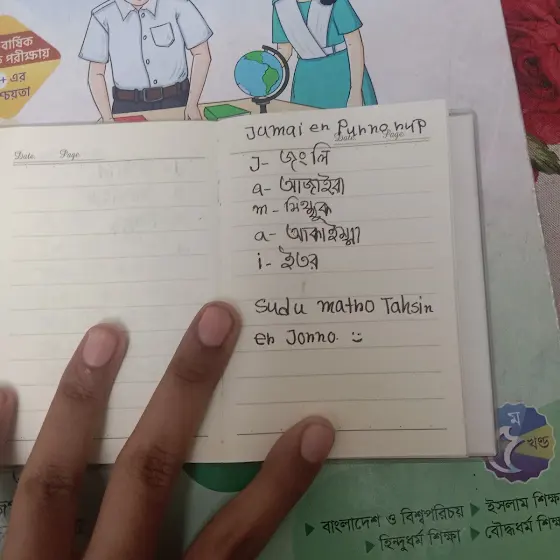 বার্ষিক
পরীক্ষায়
+ এর
Date Page
Jamai en Punno rup
Date Page
J- জংলি
a- আজাইরা
m- মিথ্যুক
a- আকাইম্মা
i- ইতর
Sudu matno Tahsin
en Jonno. :)
ম
খণ্ড
বাংলাদেশ ও বিশ্বপরিচয় ▶ ইসলাম শিক্ষ
▶ হিন্দুধর্ম শিক্ষা ▶ বৌদ্ধধর্ম শিক্ষ